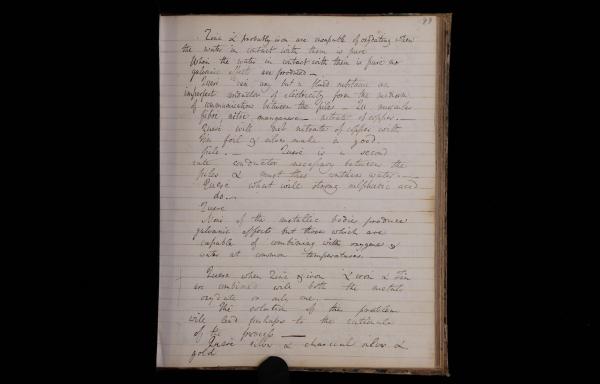 Zinc & probably iron are incapable of oxydating when
the water in contact with them is pure
When the water in contact with them is pure no
galvanic effects are produced –
Quere can any but a fluid substance an
imperfect conductor of electricity form the medium
of communication between the piles – In muscular
fibre, nitre, manganese – nitrate of copper. –
Quere will not nitrate of copper with
tin foil & silver make a good
pile. – Quere is a second
rate conductor necessary between the
piles & must this contain water. –
Quere what will strong sulphuric acid
do. –
Quere
None of the metallic bodies produce
galvanic effects but those which are
capable of combining with oxygene &
water at common temperatures
Quere when zinc & iron & iron & tin
are combined will both the metals
oxydate or only one –
The solution of this problem
will lead perhaps to the rationale
of the process –
Quere silver & charcoal silver &
gold